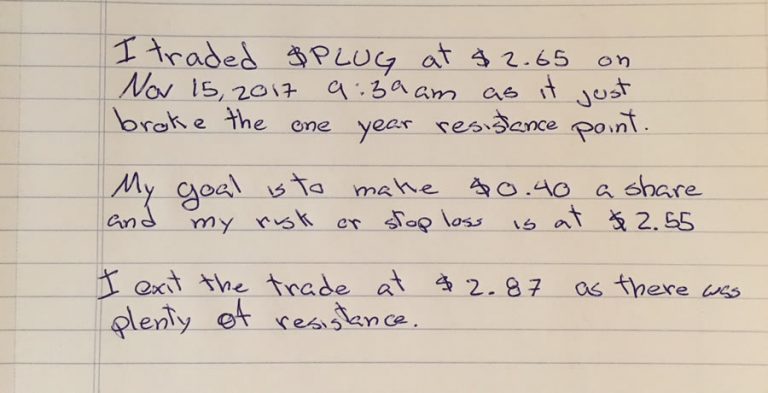 I traded $PLUG at $2.65 on
Nov 15, 2017 9:39am as it just
broke the one year resistance point.
My goal is to make $0.40 a share
and my risk or stop loss is at $2.55
I exit the trade at $2.87 as there was
plenty of resistance.